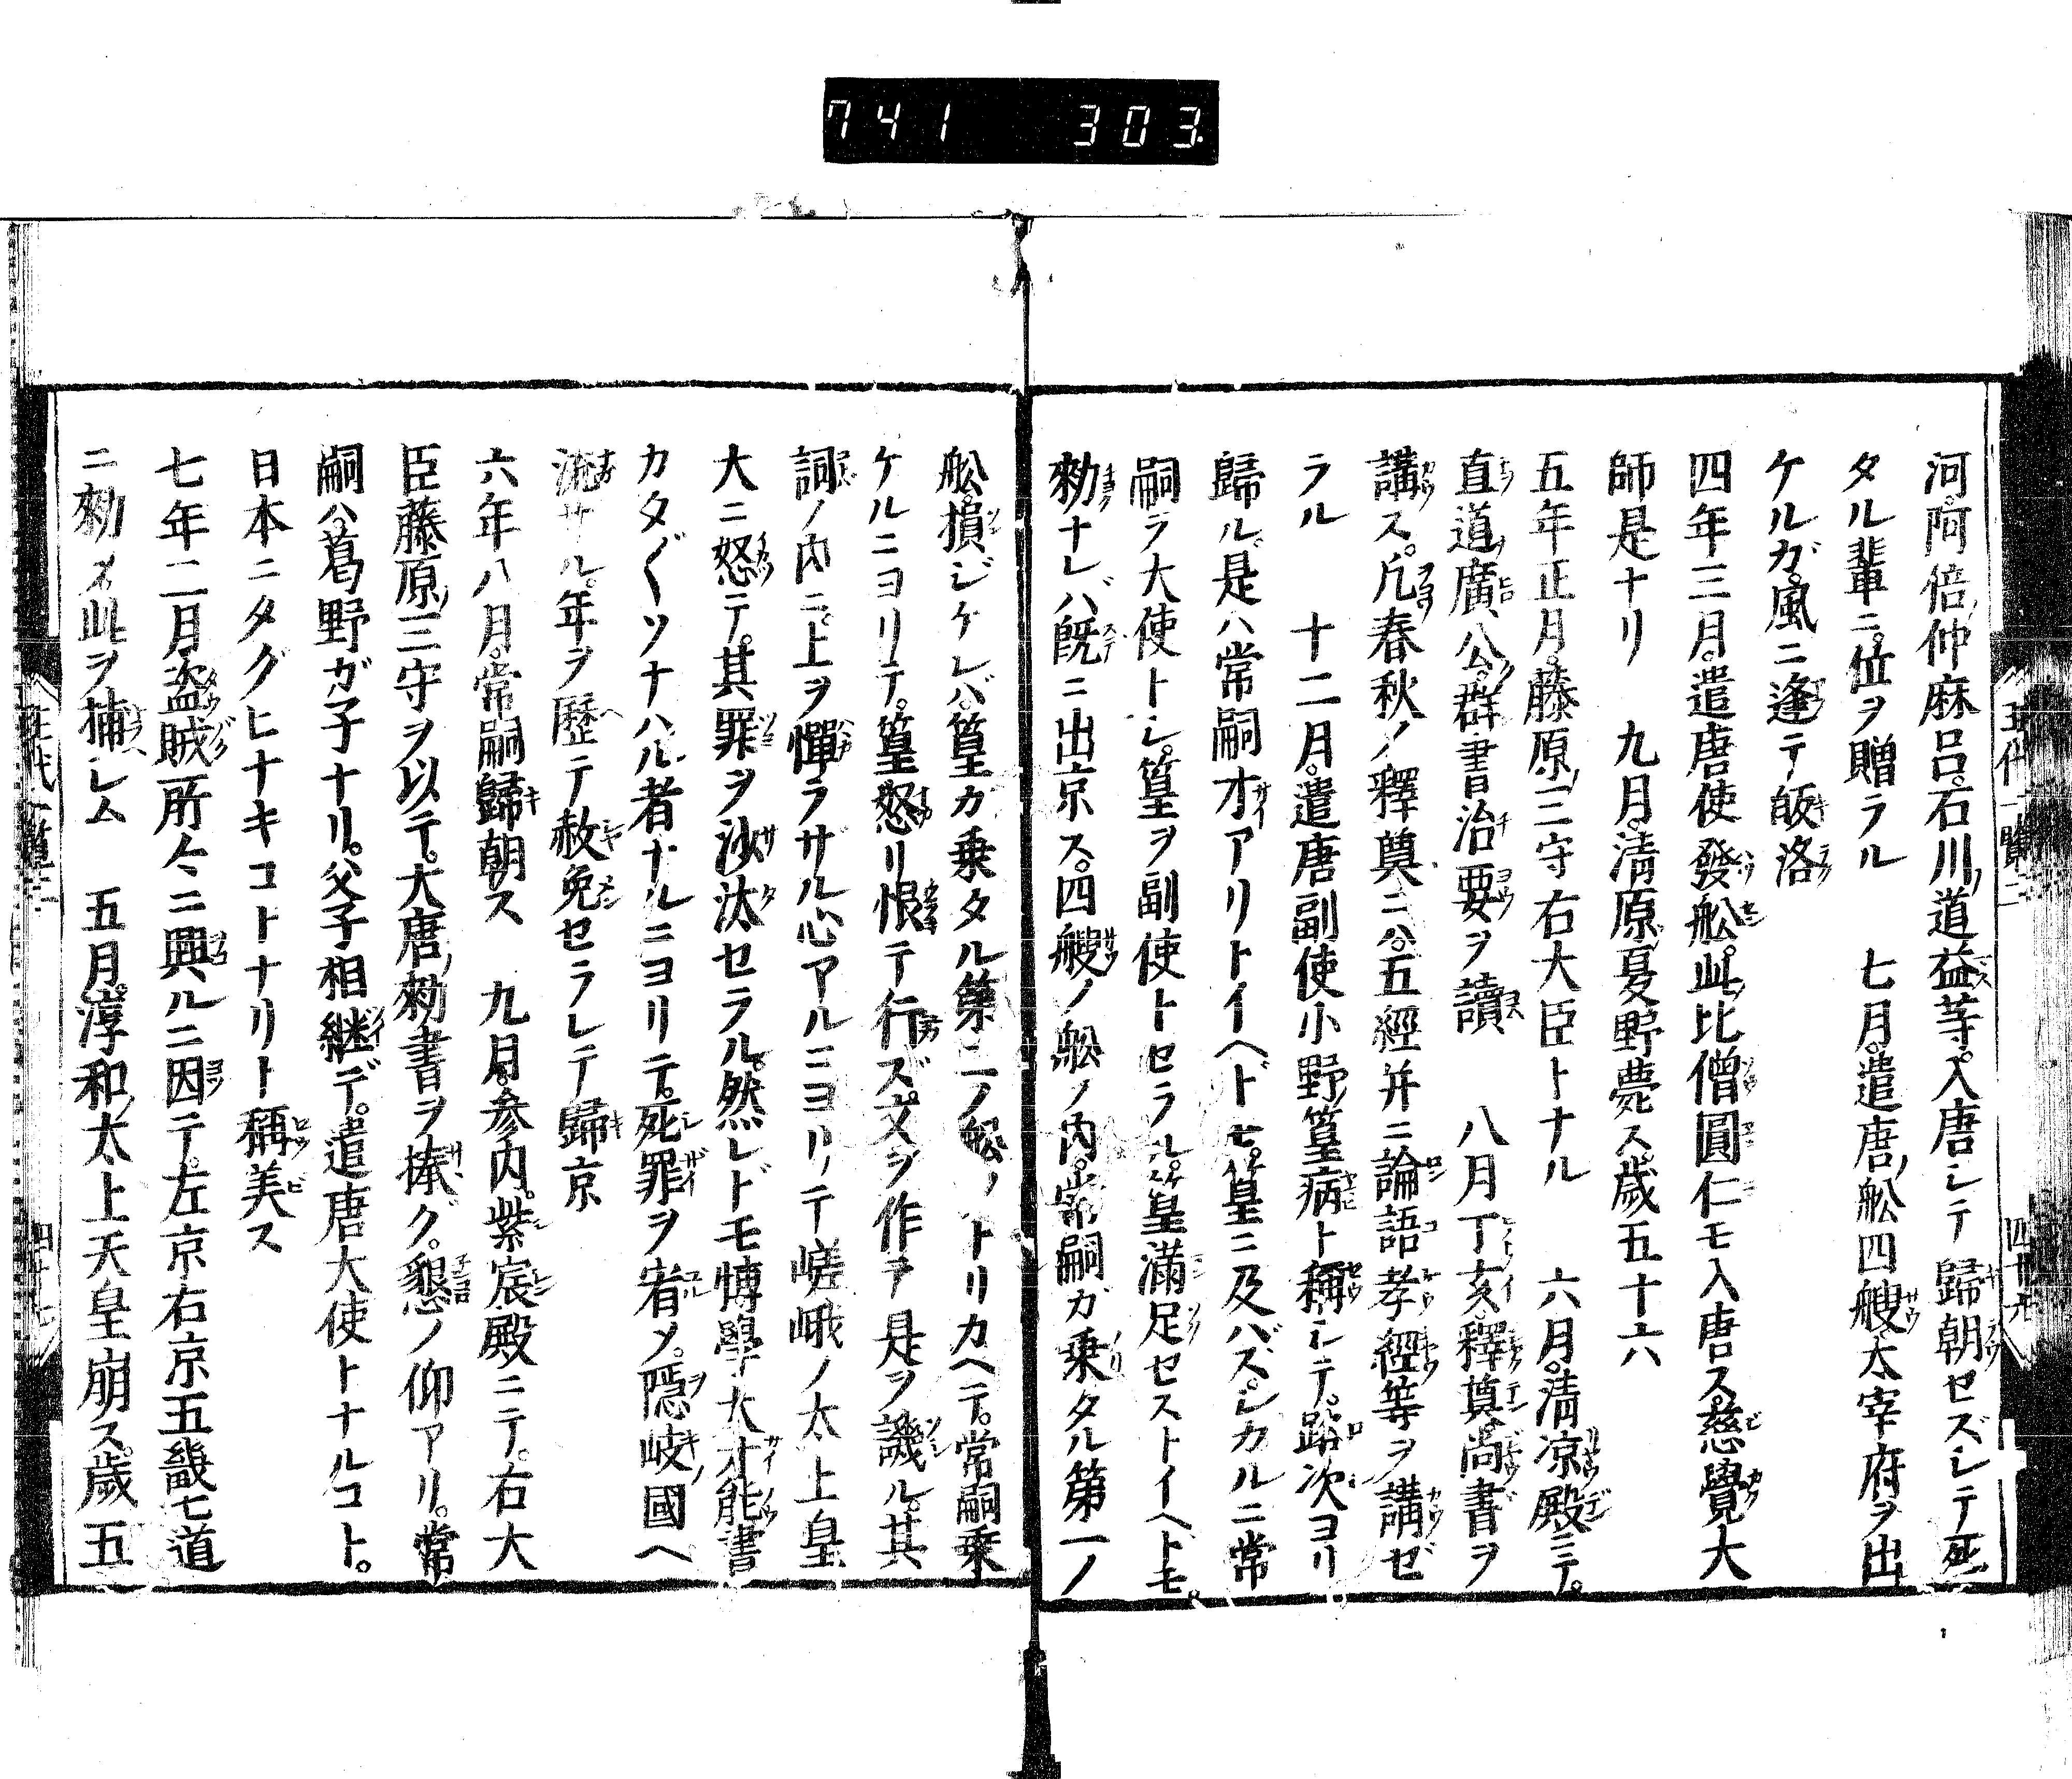 741 303
王代一覽二
四十九
河阿倍仲麻呂石川道益等入唐シテ歸朝セズシテ死
タル輩ニ位ヲ贈ラル 七月遣唐舩四艘太宰府ヲ出
ケルガ風ニ逢テ皈洛
四年三月遣唐使發舩此比僧圓仁モ入唐ス慈覺大
師是ナリ 九月清原夏野薨ス歳五十六
五年正月藤原三守右大臣トナル 六月清凉殿ニテ
直道廣公群書治要ヲ讀 八月丁亥釋奠尚書ヲ
講ス凡春秋ノ釋奠ニハ五經并ニ論語孝經等ヲ講ゼ
ラル 十二月遣唐副使小野篁病ト稱シテ路次ヨリ
歸ル是ハ常嗣才アリトイヘドモ篁ニ及バズシカルニ常
嗣ヲ大使トシ篁ヲ副使トセラル篁滿足セストイヘトモ
勅ナレバ既ニ出京ス四艘ノ舩ノ内常嗣ガ乗タル第一ノ
舩損ジケレバ篁カ乗タル第二ノ舩ノトリカヘテ常嗣乗
ケルニヨリテ篁怒リ恨テ行ズ文ヲ作テ是ヲ譏ル其
詞ノ内ニ上ヲ憚ラザル心アルニヨリテ嵯峨ノ太上皇
大ニ怒テ其罪ヲ沙汰セラル然レドモ博學大才能書
カタ〲ソナハル者ナルニヨリテ死罪ヲ宥メ隱岐國ヘ
流サル年ヲ歴テ赦免セラレテ歸京
六年八月常嗣歸朝ス 九月参内紫宸殿ニテ右大
臣藤原三守ヲ以テ大唐勅書ヲ捧グ懇ノ仰アリ常
嗣ハ葛野ガ子ナリ父子相継デ遣唐大使トナルコト
日本ニタグヒナキコトナリト稱美ス
七年二月盗賊所々ニ興ルニ因テ左京右京五畿七道
ニ勅メ此ヲ捕シム 五月淳和太上天皇崩ス歳五